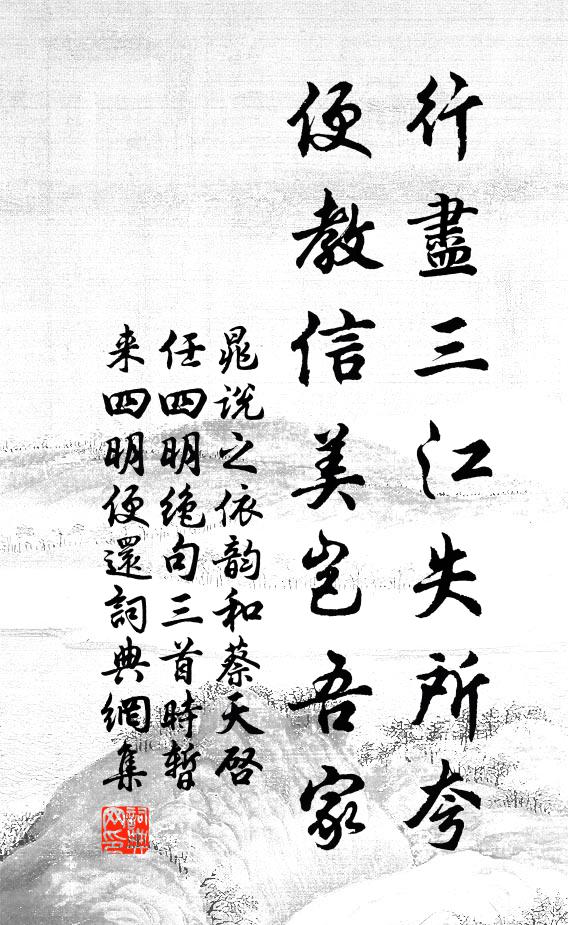 行盡三江失所夸
便教信美豈吾家
晁说之依韵和蔡天启
任四明绝句三首時暫
来四明便還詞典網集